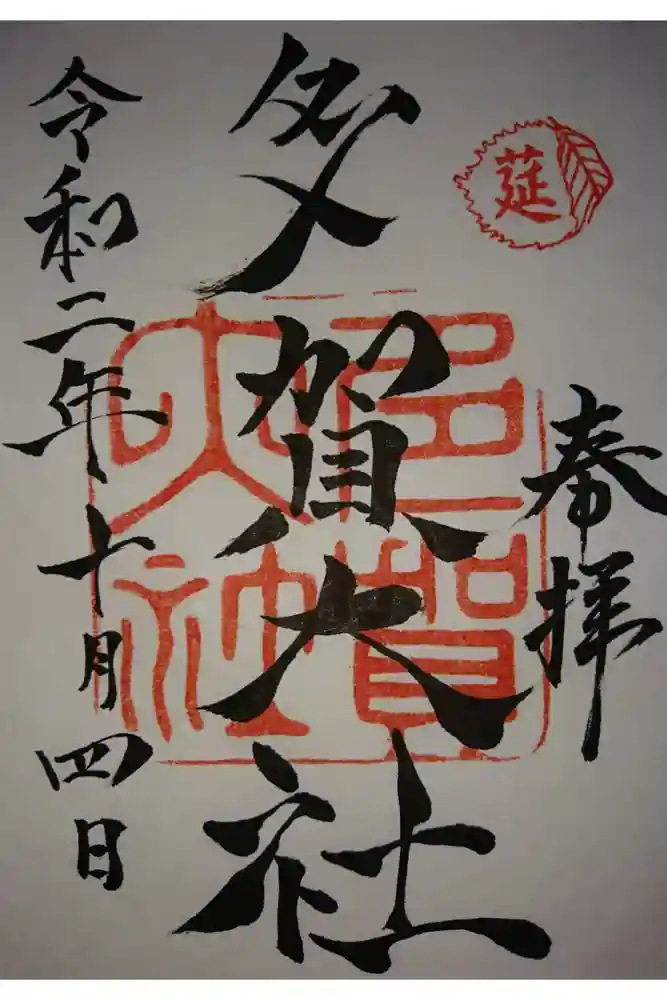 奉拝
莚
多賀大社
多賀大社
令和二年十月四日